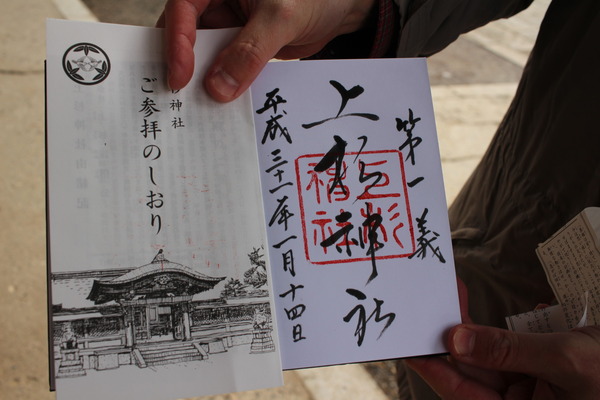 第一義
上杉神社
上杉
神社
平成三十一年一月十四日
神社
ご参拝のしおり